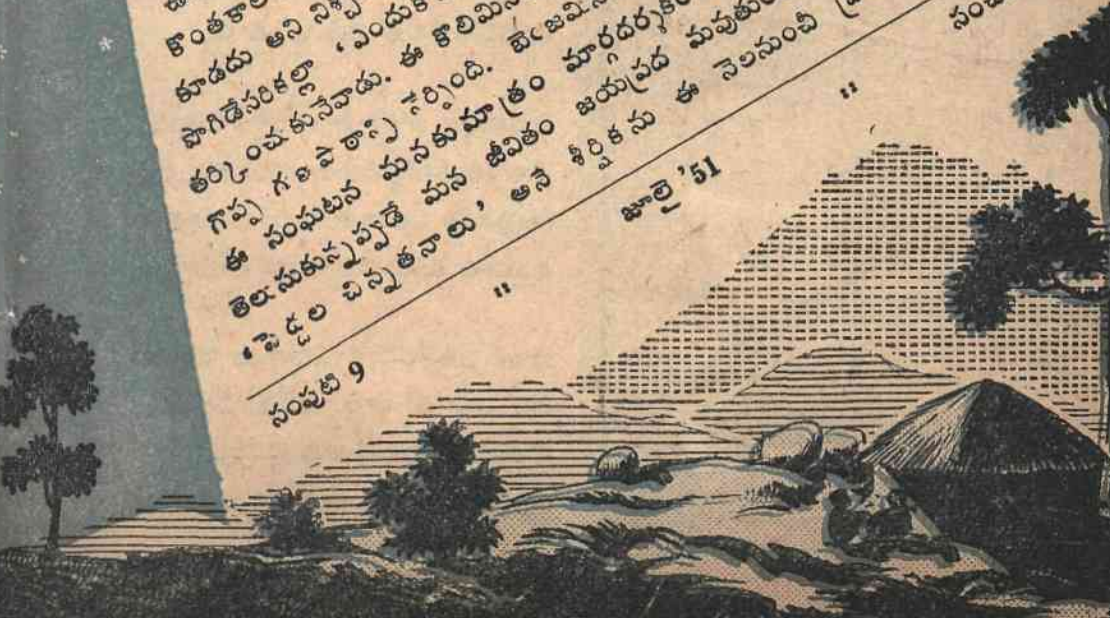 కొంతకాల
కూడదు అని నిశ్చ
పొగిడేసరికల్లా 'ఎందుక
తర్కించుకునేవాడు. ఈ కొలిమిన
గొప్ప గుణపాఠాన్ని నేర్పింది. బెంజమిన
ఈ సంఘటన మనకుమాత్రం మార్గదర్శక
తెలుసుకున్నప్పుడే మన జీవితం జయప్రద మవుతుం
'పెద్దల చిన్నతనాలు' అనే శీర్షికను ఈ నెలనుంచీ
సంపుటి 9 " జూలై '51 " సంచ